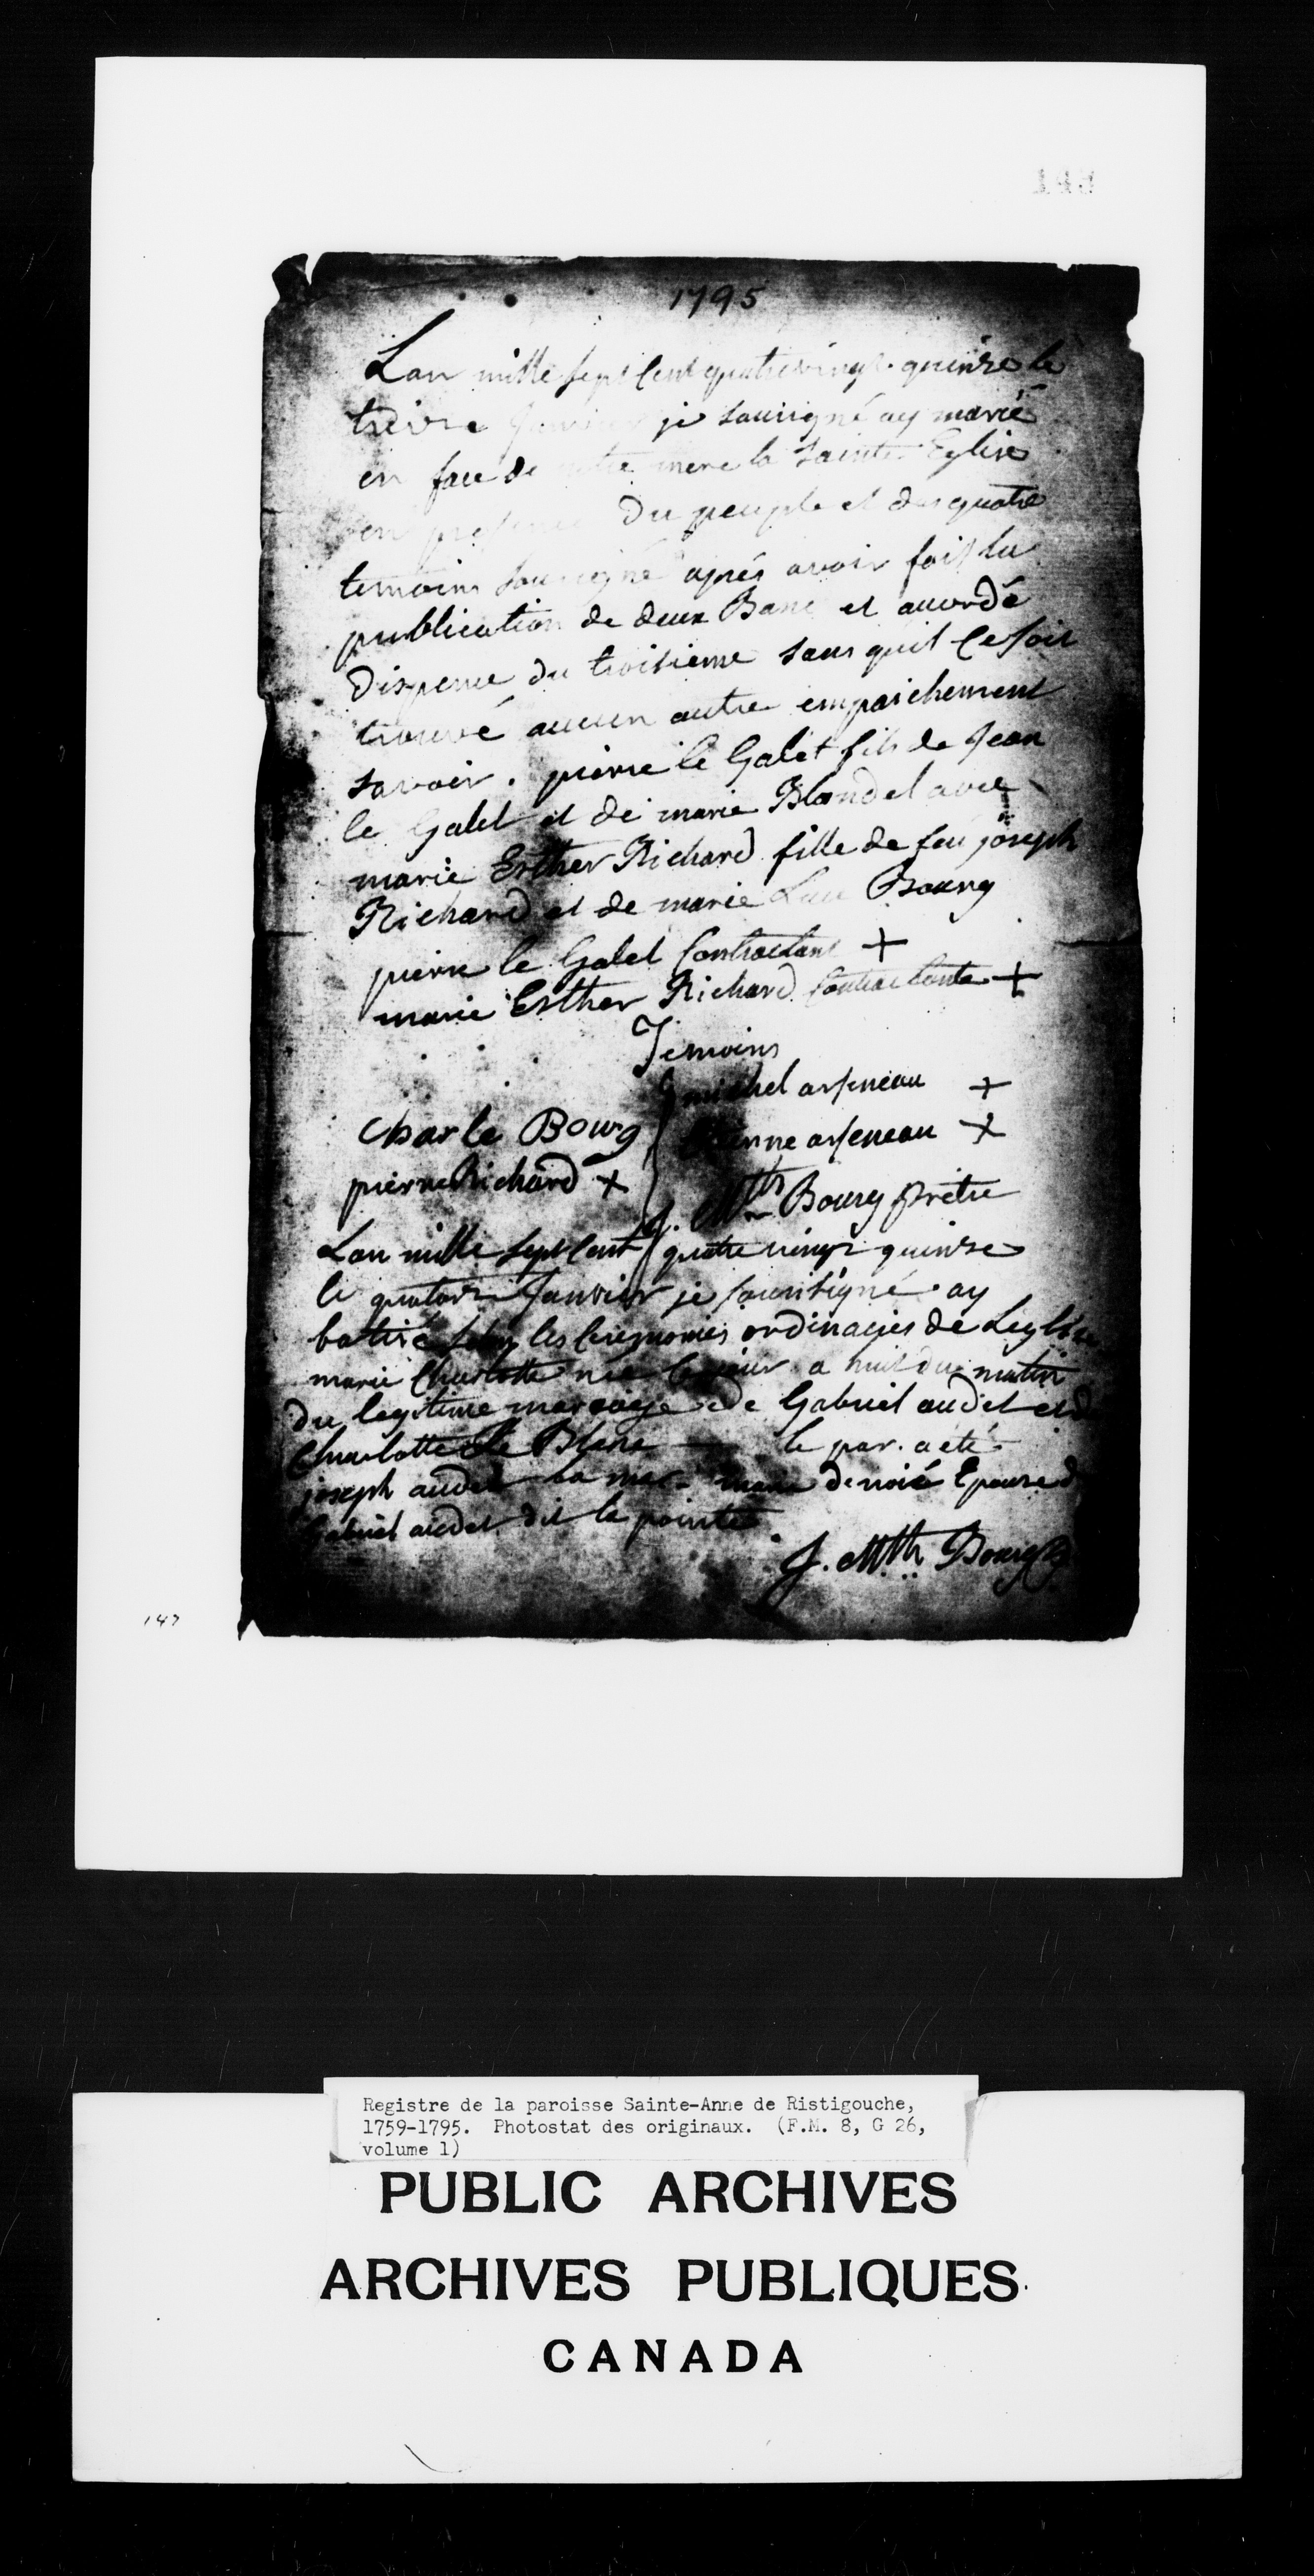 1795
Lan mille sept Cent quatrevingt quinze le
treize Janvier je sousigné ay marié
en face de notre mere la sainte Eglise
en presence du peuple et des quatre
temoins sousigné aprés avoir fait la
publication de deux Banc et accordé
dispence du troisieme sans quil ce soit
trouvé aucun autre empaichement
savoir. pierre le Galet fils de Jean
le Galet et de marie Blondel avec
marie Esther Richard fille de feu joseph
Richard et de marie Luce Bourg
pierre le Galet Contractant +
marie Esther Richard Contractante +
Temoins
michel arseneau +
Charle Bourg Etienne arseneau +
pierre Richard +
J. Mth Bourg prêtre
Lan mille sept Cent quatre vingt quinze
le quatorze Janvier je sousigné ay
batisé selon les Ceremonies ordinaires de Leglise
marie Charlotte née ce jour a huit du matin
du legitime mariage de Gabriel audet et de
Charlotte Le Blanc le par. a eté
joseph audet la mar. marie denoié Epouse d
Gabriel audet dit la pointe
J. Mth Bourg
147
Registre de la paroisse Sainte-Anne de Ristigouche,
1759-1795. Photostat des originaux. (F.M. 8, G 26,
volume 1)
PUBLIC ARCHIVES
ARCHIVES PUBLIQUES
CANADA